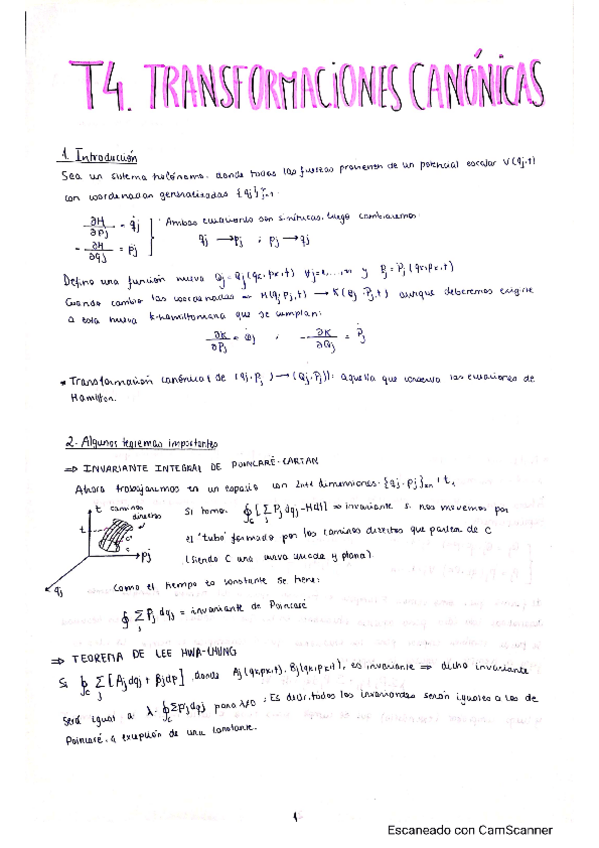 T4. TRANSFORMACIONES CANÓNICAS
1. Introducción
Sea un sistema holónomo, donde todas las fuerzas provienen de un potencial escalar V(qj,t)
con coordenadas generalizadas {qj}ⁿj=1:
∂H/∂pj = q̇j
-∂H/∂qj = ṗj
Ambas ecuaciones son simétricas, luego cambiaremos:
qj → pj ; pj → qj
Defino una función nueva Qj = Qj(qk,pk,t) ∀j=1,...,n y Pj = Pj(qk,pk,t)
Cuando cambio las coordenadas → H(qj,pj,t) → K(Qj,Pj,t) aunque deberemos exigirle
a esta nueva k-hamiltoniana que se cumplan:
∂K/∂Pj = Q̇j ; -∂K/∂Qj = Ṗj
* Transformación canónica (de (qj,pj) → (Qj,Pj)): aquella que conserva las ecuaciones de
Hamilton.
2. Algunos teoremas importantes
⇒ INVARIANTE INTEGRAL DE POINCARÉ-CARTAN
Ahora trabajaremos en un espacio con 2n+1 dimensiones: {qj, pj}, t,
t caminos
directos
t
C
pj
qj
Si tomo: ∮c [Σj Pj dqj - H dt] ⇒ invariante si nos movemos por
el "tubo" formado por los caminos directos que parten de C
(siendo C una curva cerrada y plana).
Como el tiempo es constante se tiene:
∮ Σj Pj dqj = invariante de Poincaré
⇒ TEOREMA DE LEE HWA-CHUNG
Si ∮c Σj [Aj dqj + Bj dp], donde Aj(qk,pk,t), Bj(qk,pk,t), es invariante ⇒ dicho invariante
será igual a λ·∮c Σ pj dqj para λ≠0; Es decir, todos los invariantes serán iguales a los de
Poincaré, a excepción de una constante.
1
Escaneado con CamScanner